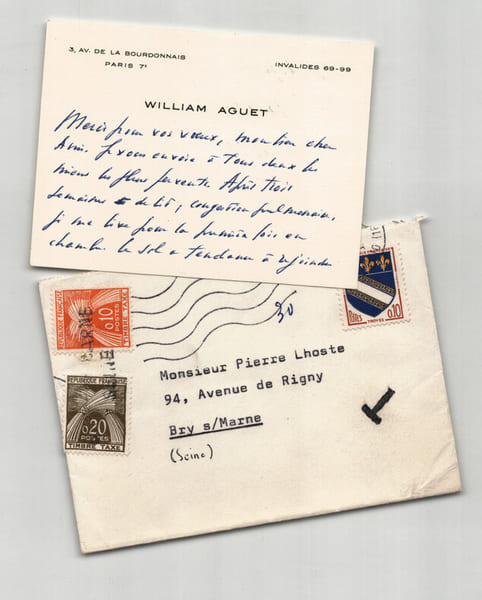 3, AV. DE LA BOURDONNAIS
PARIS 7e
INVALIDES 69-99
WILLIAM AGUET
Merci pour vos vœux, mon bien cher
Ami. Je vous envoie à tous deux les
miens les plus fervents. Après trois
semaines de lit, congestion pulmonaire,
je me lève pour la première fois en
chambre le sol a tendance à rejoindre
REPUBLIQUE FRANÇAISE
0,10
POSTES
TIMBRE TAXE
MARNE
REPUBLIQUE FRANÇAISE
0,20
POSTES
TIMBRE TAXE
30
REPUBLIQUE FRANÇAISE
POSTES
TROYES
0,10
Monsieur Pierre Lhoste
94, Avenue de Rigny
Bry s/Marne
(Seine)
T